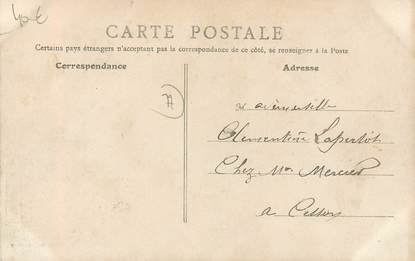 40€
CARTE POSTALE
Certains pays étrangers n'acceptant pas la correspondance de ce côté, se renseigner à la Poste
Correspondance
Adresse
Clementine Laperlot
Chez Mr Mercier
a